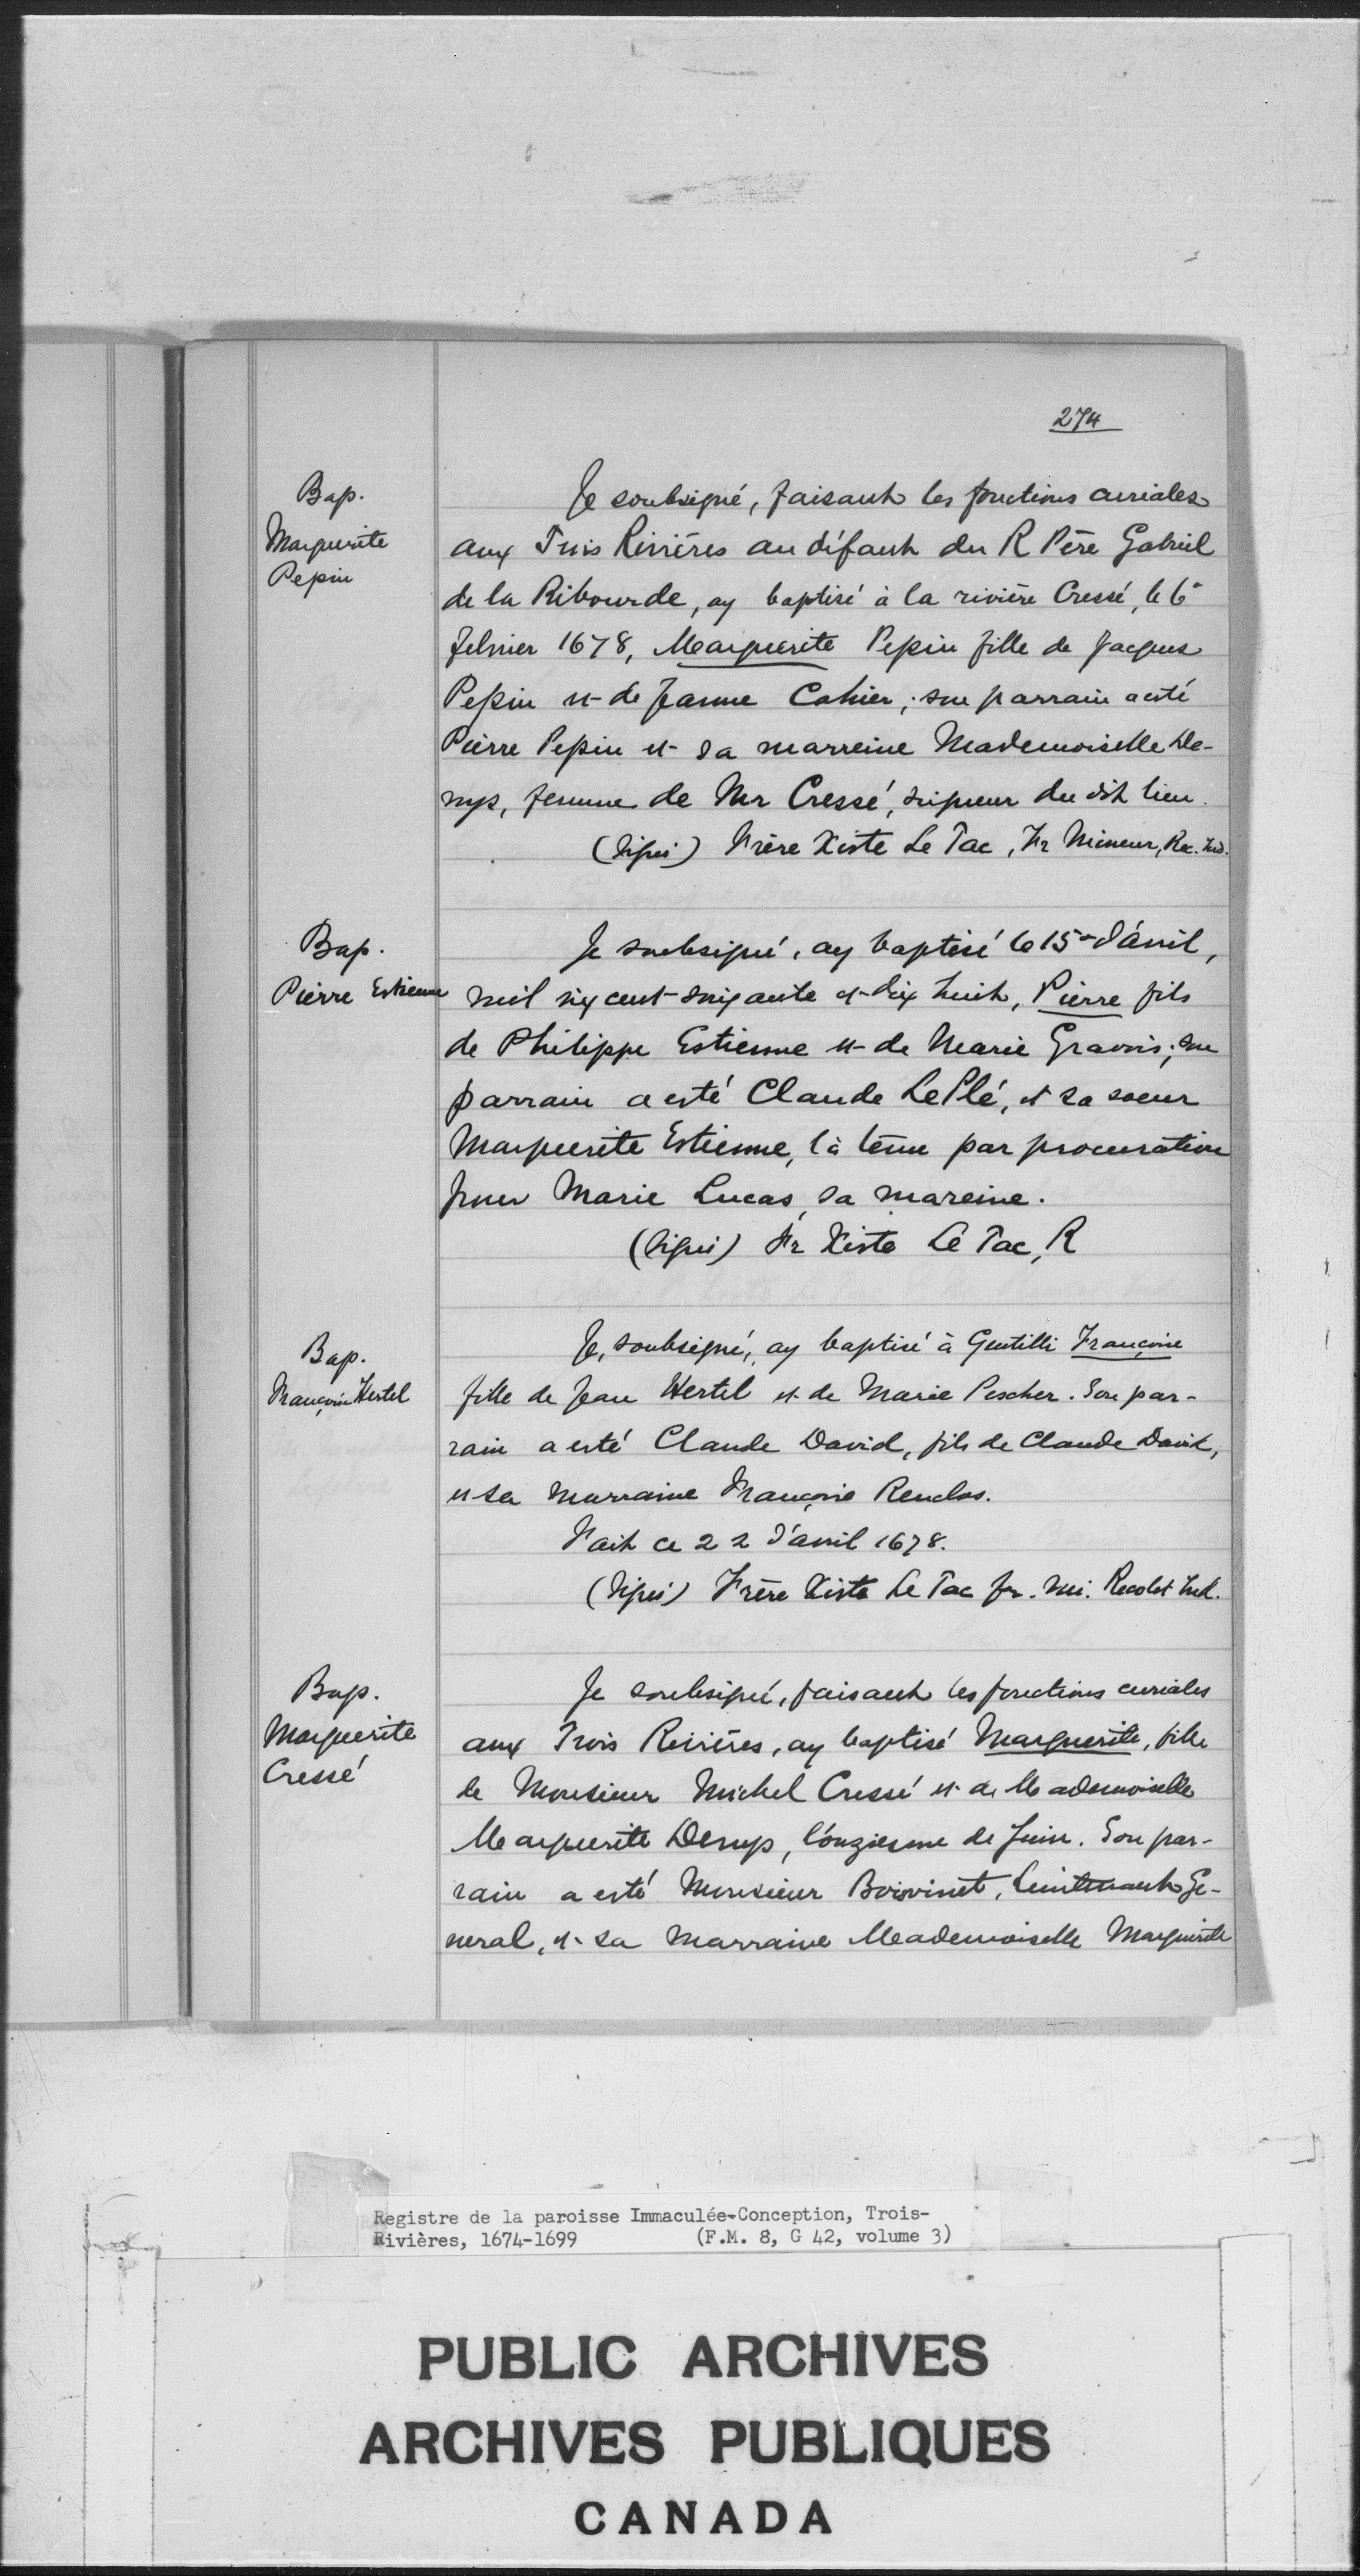 274
Bap.
Marguerite
Pepin
Je soubsigné, faisant les fonctions curiales
aux Trois Rivières au défaut du R Père Gabriel
de la Ribourde, ay baptisé à la rivière Cressé, le 6e
febvrier 1678, Marguerite Pepin fille de Jacques
Pepin et de Jeanne Cahier; son parrain a esté
Pierre Pepin et sa marreine Mademoiselle De-
nys, femme de Mr Cressé, seigneur du dit lieu.
(Signé) Frère Xiste Le Tac, Fr Mineur, Rec. Ind.
Bap.
Pierre Estienne
Je soubsigné, ay baptisé le 15e d'avril,
mil six cent soixante et dix huit, Pierre fils
de Philippe Estienne et de Marie Gravois; son
parrain a esté Claude Le Plé, et sa soeur
Marguerite Estienne, l'a tenu par procuration
pour Marie Lucas, sa mareine.
(Signé) Fr Xiste Le Tac, R
Bap.
Françoise Hertel
Je, soubsigné, ay baptisé à Gentilli Françoise
fille de Jean Hertel et de Marie Pescher. Son par-
rain a esté Claude David, fils de Claude David,
et sa marraine Françoise Renclos.
Fait ce 22 d'avril 1678.
(Signé) Frère Xiste Le Tac fr. mi. Recolet Ind.
Bap.
Marguerite
Cressé
Je soubsigné, faisant les fonctions curiales
aux Trois Rivières, ay baptisé Marguerite, fille
de Monsieur Michel Cressé et de Mademoiselle
Marguerite Denys, l'onziesme de Juin. Son par-
rain a esté Monsieur Boivinet, Lieutenant Ge-
neral, et sa marraine Mademoiselle Marguerite
Registre de la paroisse Immaculée-Conception, Trois-
Rivières, 1674-1699 (F.M. 8, G 42, volume 3)
PUBLIC ARCHIVES
ARCHIVES PUBLIQUES
CANADA